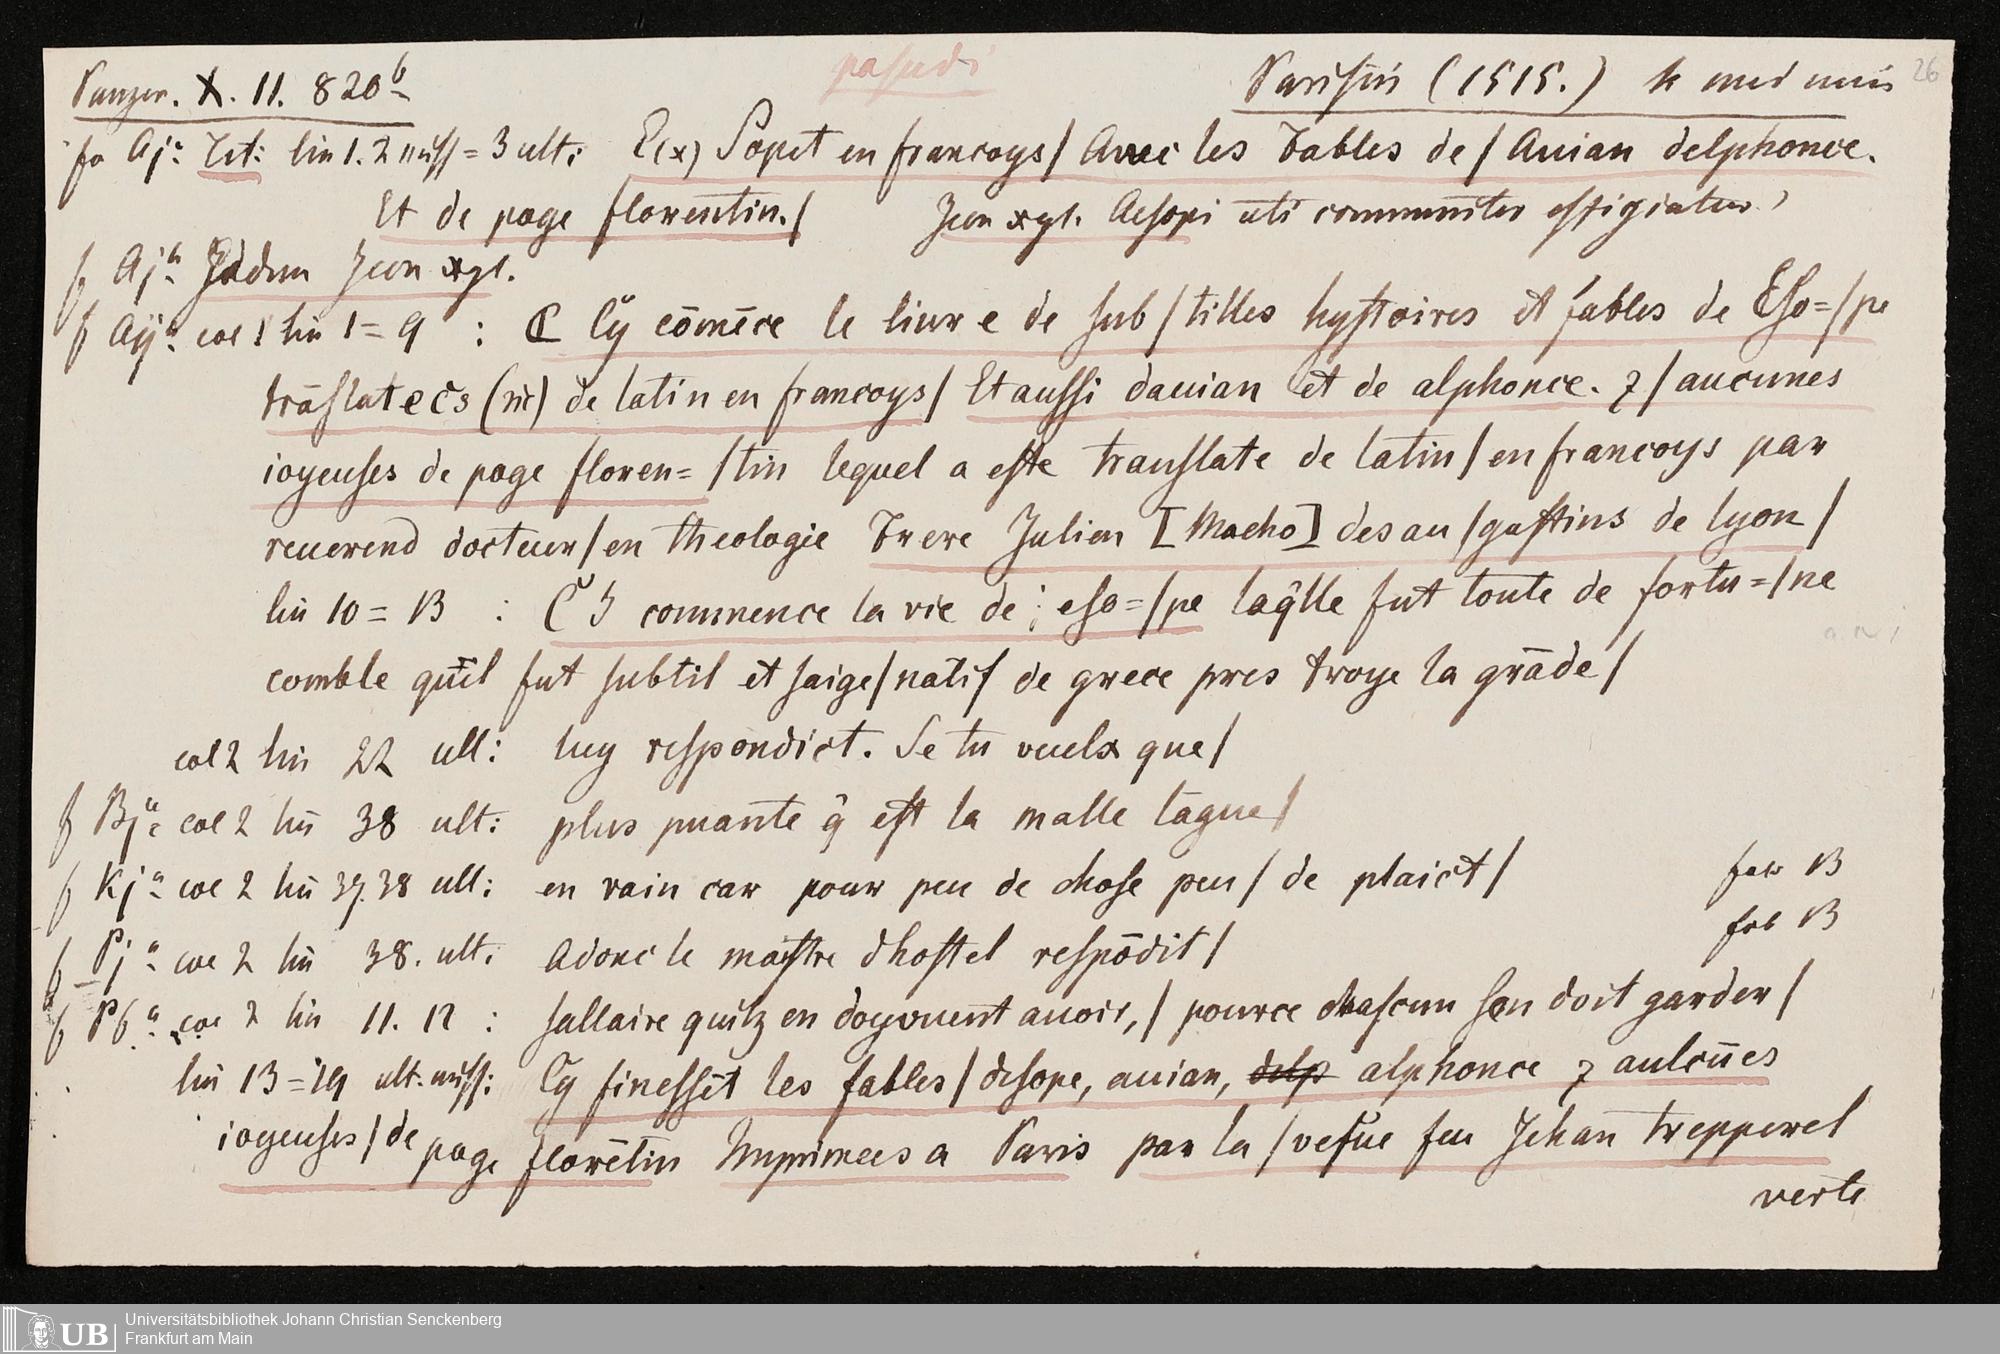 Panzer. X. 11. 820b
pasudi
Parisiis (1515.) k med min
26
fo Aja Tit: lin 1. 2 miss = 3 ult: E(x) Sopet en francoys/ Auec les Fables de/ Auian delphonce.
Et de poge florentin./ Icon xyl. Aesopi uti communiter effigiatur
f Ajb Eadem Icon xyl.
f Aija col 1 lin 1=9 : ₵ Cy cōmēce le liure de sub/tilles hystoires et fables de Eso=/pe
trāslatecs (sic) de latin en francoys/ Et aussi dauian et de alphonce. ⁊/ aucunes
ioyeuses de poge floren=/tin lequel a este translate de latin/ en francoys par
reuerend docteur/ en theologie Frere Julien [Macho] des au/gustins de lyon/
lin 10=13 : CY commence la vie de eso=/pe laq̄lle fut toute de fortu=/ne
comble qu̅il fut subtil et saige/ natif de grece pres troye la grāde/
col 2 lin 22 ult: luy respondict. Se tu veulx que/
f Bja col 2 lin 38 ult: plus puante q̄ est la malle lāgue/
f Kja col 2 lin 37. 38 ult: en vain car pour peu de chose peu/ de plaict/
fab 13
fab 13
f Pja col 2 lin 38. ult: Adonc le maistre dhostel respōdit/
f P6a col 2 lin 11. 12 : sallaire quilz en doyuent auoir,/ pource chascun sen doit garder/
lin 13=19 ult. miss: Cy finessēt les fables/ desope, auian, delp alphonce ⁊ aulcūes
ioyeuses/ de poge florētin Imprimees a Paris par la/ vefue feu Jehan trepperel
verte
UB
Universitätsbibliothek Johann Christian Senckenberg
Frankfurt am Main